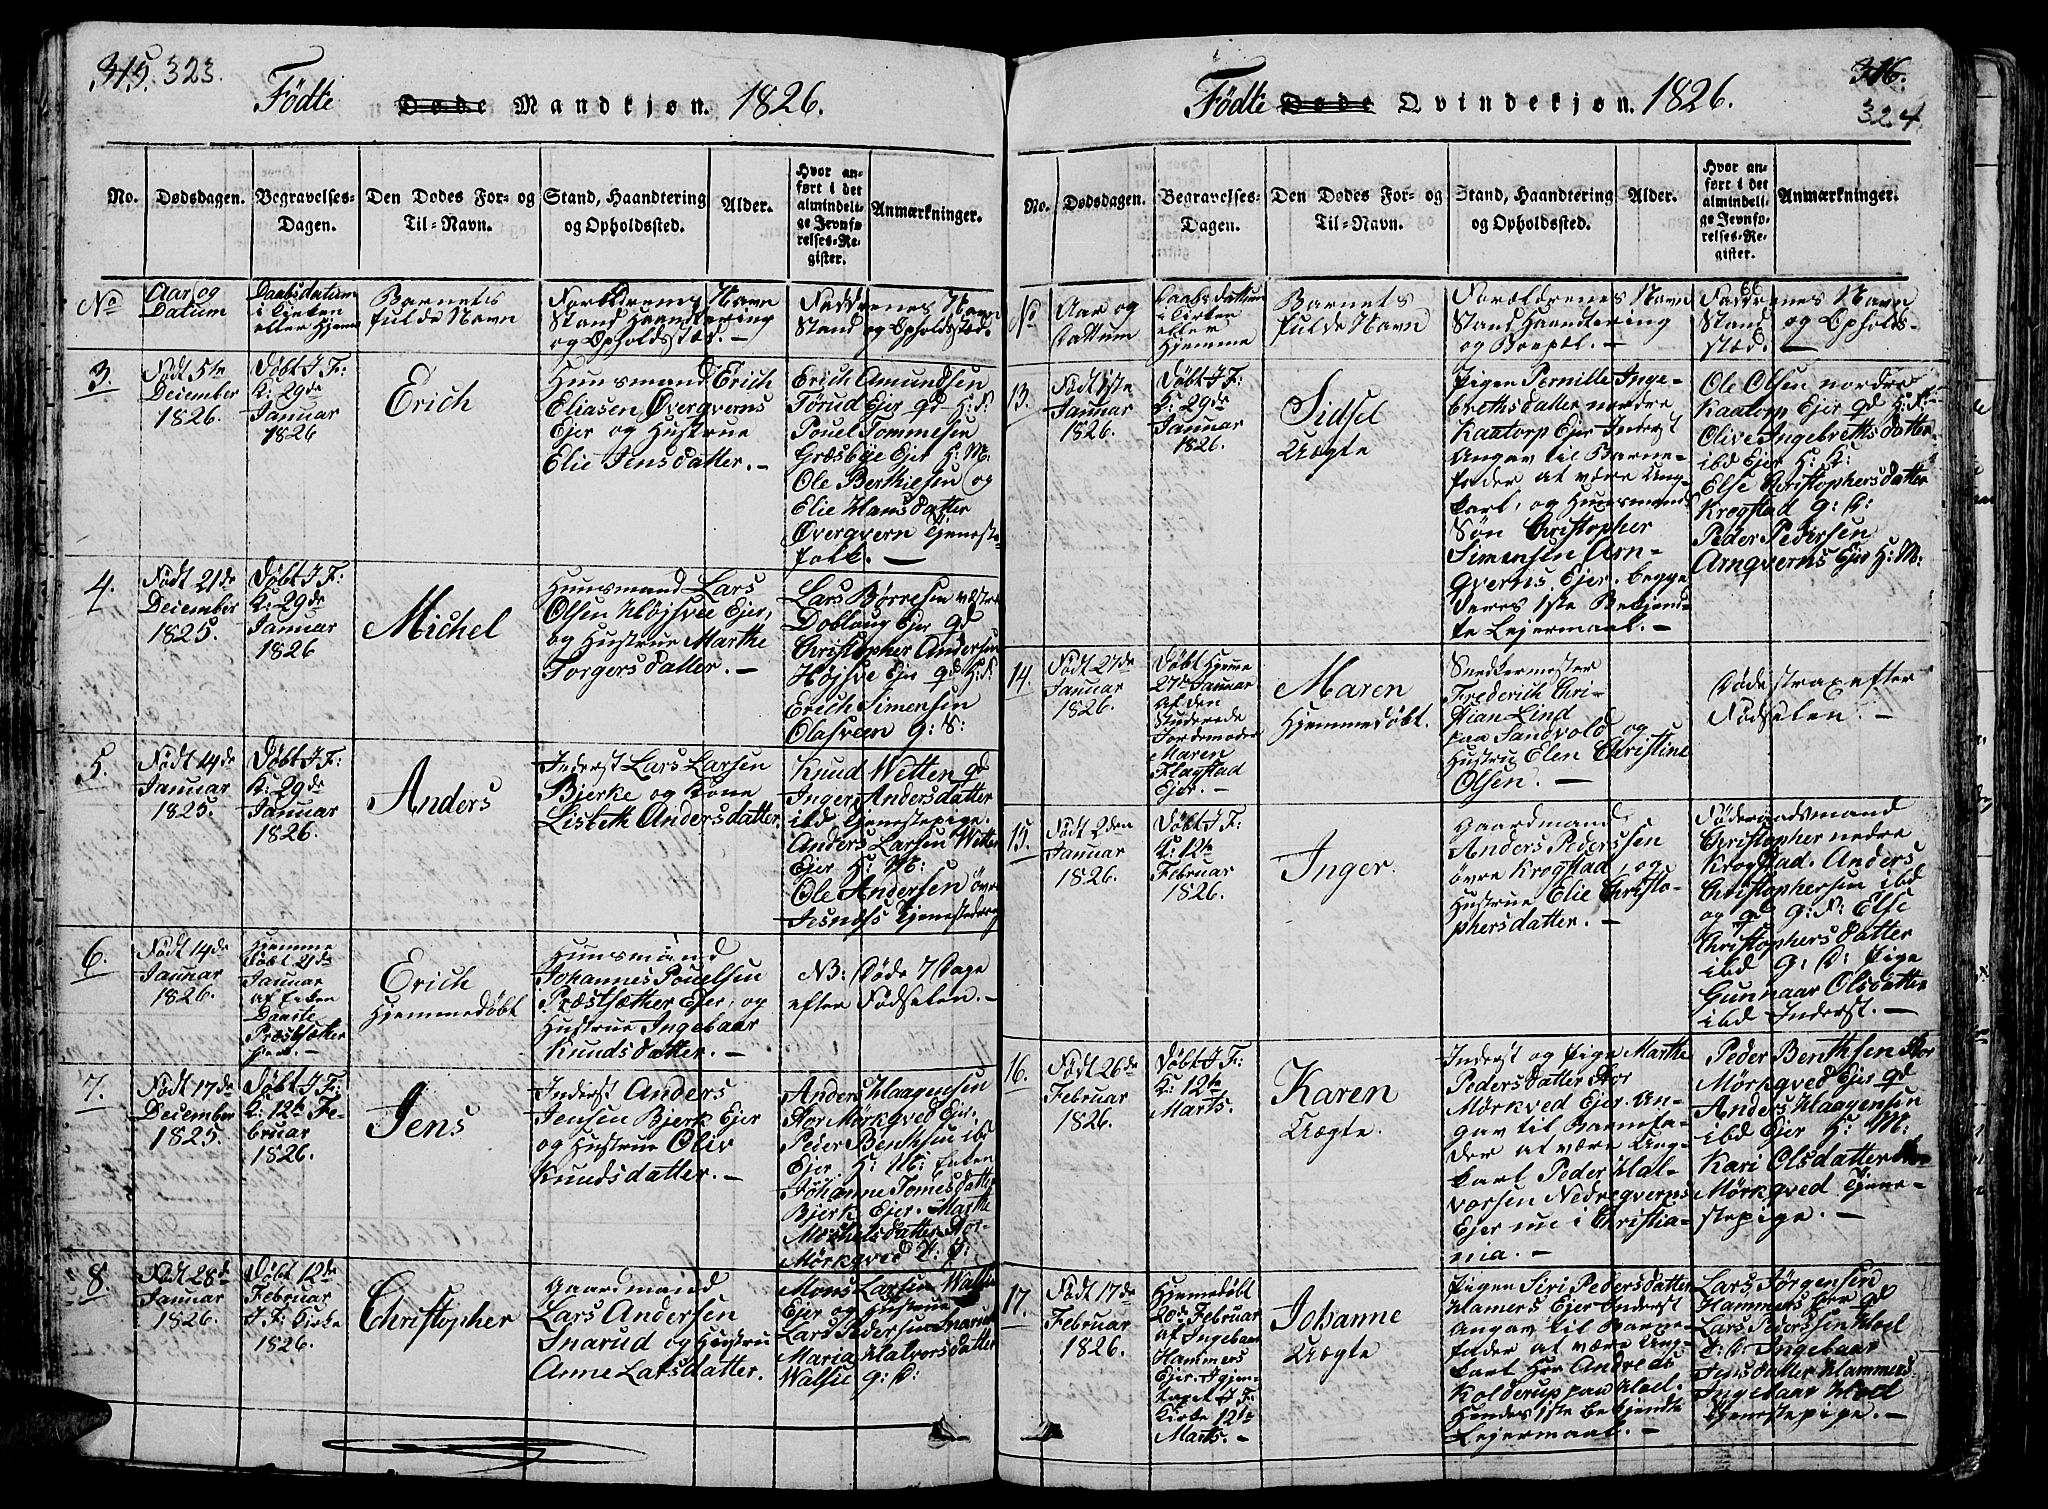 315. 323.
Fødte Døde Mandkjøn. 1826.
No. Dødsdagen. Begravelses-Dagen. Den Dødes For- og Til-Navn. Stand, Haandtering og Opholdssted. Alder. Hvor anført i det almindelige Jevnførelses-Register. Anmærkninger.
No Aar og Datum
Daabsdatum i Kirken eller Hjeme
Barnets fulde Navn
Forældrenes Navn Stand Haandtering og Opholdsstæd. -
Faddrenes Navn Stand og Opholdstæd.
3.
Født 5te
December
1826.
Døbt I F:
K: 29de
Januar
1826
Erich
Huusmand Erich
Eliasen Øvergverns
Ejer og Hustrue
Elie Jensdatter. -
Erich Amundsen
Torud Ejer gd H: F:
Pouel Tommesen
Græsbye Ejer H: M:
Ole Berthelsen og
Elie Hansdatter
Øvergvern Tjeneste-
folk. -
4.
Født 21de
December
1825.
Døbt I F:
K: 29de
Januar
1826
Michel
Huusmand Lars
Olsen Højsvee Ejer,
og Hustrue Marthe
Torgersdatter. -
Lars Børresen væstre
Dobloug Ejer gd
Christopher Andersen
Højsve Ejer gd H: F:
Erich Simensen
Olasveen g: S:
5.
Født 14de
Januar
1825.
Døbt I F:
K: 29de
Januar
1826.
Anders
Inderst Lars Larsen
Bjerke og Kone
Lisbeth Andersdatter.
Knud Wetten gd
Inger Andersdatter
ibd Tjenestepige.
Anders Larsen Wetten
Ejer H: M:
Ole Andersen øvre
Jesness Tjenestedreng
6.
Født 14de
Januar
1826.
Hjemme
døbt 21de
Januar
af Enken
Danste
Præstsæther
Ejer. -
Erich
Hjemmedøbt
Huusmand
Johannes Pouelsen
Præstsæther Ejer, og
Hustrue Ingebaar
Knudsdatter. -
NB: Døde 7 Dage
efter Fødselen. -
7.
Født 17de
December
1825.
Døbt I F:
K: 12te Fe-
bruar
1826.
Jens
Inderst Anders
Jensen Bjerk Ejer
og Hustrue Oliv
Knudsdatter. -
Anders Haagensen
Stor Mörkqved Ejer.
Peder Benthsen ibd
Ejer. H: M: Enken
Johanne Tomesdatter
Bjerk Ejer. Marthe
Michelsdatter Stor-
Mörkqved P: P:
8.
Født 28de
Januar
1826.
Døbt 12de
Februar
I F: Kirke
1826.
Christopher
Gaardmand
Lars Andersen
Snarud og Hustru
Anne Larsdatter.
Mons Larsen Walsie
Ejer og Hustrue
Lars Pedersen Snarud
Maria Halvorsdatter
Walsie g: P:
316.
324.
Fødte Døde Qvindekjøn. 1826.
No. Dødsdagen. Begravelses-Dagen. Den Dødes For- og Til-Navn. Stand, Haandtering og Opholdssted. Alder. Hvor anført i det almindelige Jevnførelses-Register. Anmærkninger.
No
Aar og Dattum
Daabs dattum i Kirken eller Hjemme
Barnets fulde Navn
Forældrenes Navn Stand Haandtering og Boepæl. -
66
Faddrenes Navn Stand og Opholds-stæd. -
13.
Født 1ste
Januar
1826.
Døbt I F:
K: 29de
Januar
1826.
Sidsel
Uægte
Pigen Pernille Inge-
brethsdatter nordre
Kaatorp Ejer Inderst
Angav til Barne-
fader at være Ung-
karl, og Huusmands
Søn Christopher
Simensen Arn-
qverns Ejer. begge
deres 1ste Bekjend-
te Lejermaal. -
Ole Olsen nordre
Kaatorp Ejer gd H: F:
Olive Ingebrethsdatter
ibd Ejer H: K:
Else Christophersdatter
Krogstad g: P:
Peder Pedersen
Arnqverns Ejer H: M:
14.
Født 27de
Januar
1826.
Døbt Hjemme
27de Januar
af den
Studerede
Jordemoder
Maren
Flagstad
Ejer. -
Maren
Hjemmedøbt.
Snedkermester
Frederich Chri-
stian Lind
paa Sandvold og
Hustru Elen Christine
Olsen. -
Døde strax efter
Fødselen. -
15.
Født 2den
Januar
1826.
Døbt I F:
K: 12te
Februar
1826.
Inger.
Gaardmand
Anders Pederssen
övre Krogstad, og
Hustrue Elie Christo-
phersdatter. -
Föderaadsmand
Christopher nedre
Krogstad. Anders
Christophersen ibd
og gd g: F: Else
Christophersdatter
ibd g: P: Pige
Gunnaar Olsdatter
ibd Inderst. -
16.
Født 26de
Februar
1826.
Døbt I F:
K: 12te
Marts.
Karen
Uægte.
Inderst og Pige Marthe
Pedersdatter Stor
Mörkved Ejer. An-
gav til Barnefa-
der at være Ung-
karl Peder Hal-
vorsen Nedreqverns
Ejer nu i Christia-
nia. -
Peder Benthsen Stor
Mörkqved Ejer gd
Anders Haagensen
ibd Ejer H: M:
Kari Olsdatter
Mörkqved Tjene-
stepige. -
17.
Født 17de
Februar
1826.
Hjemmedøbt
20de Februar
af Ingebaar
Hammers
Ejer. Igjen-
taget I F:
Kirke 12te
Marts. -
Johanne
Uægte
Pigen Siri Pedersdatter
Hamers Ejer Inderst
Angav til Barne-
fader at være Ung-
karl Her Andreas
Kolderup paa Hoel.
Hendes 1ste bekjendte
Lejermaal. -
Lars Jørgensen
Hammers Ejer gd
Lars Pederssen Hoel
P: P: Ingebaar
Jensdatter Hammers
Ingebaar Hoel
Tjenestepige. -